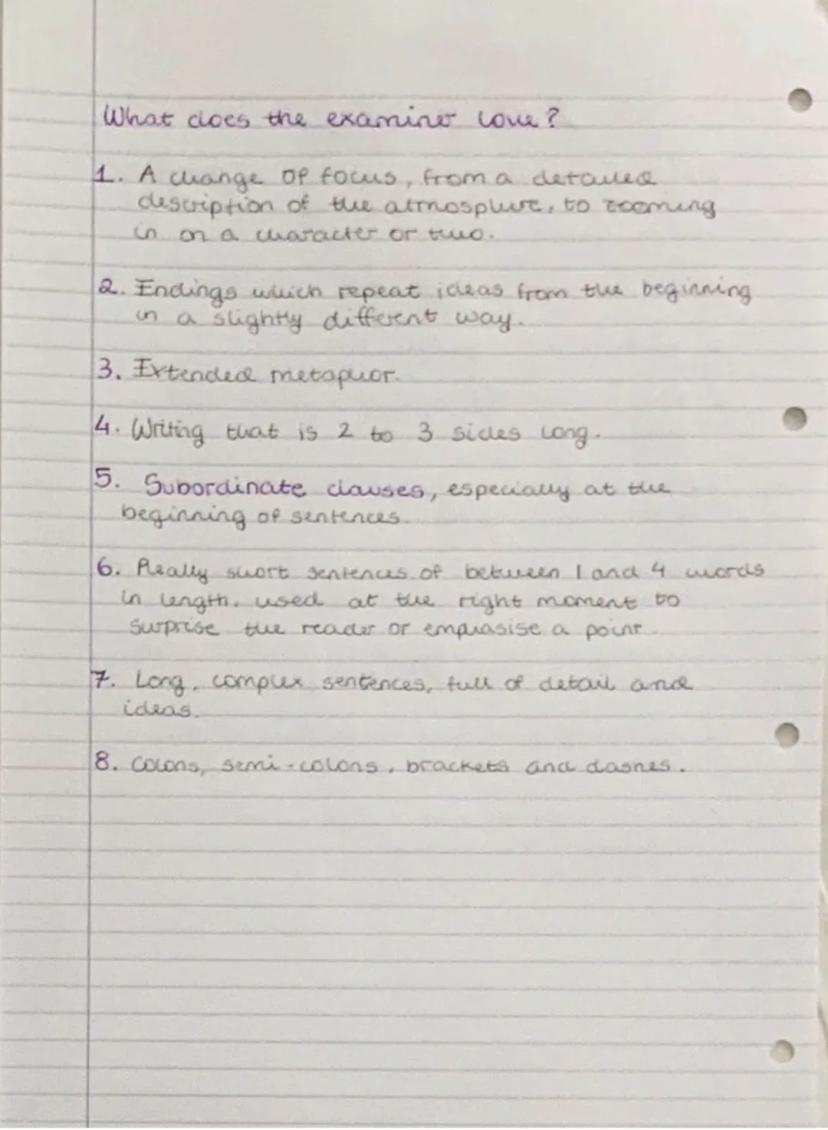 What does the examiner love?
1. A change of focus, from a detailed
description of the atmosphere, to zooming
in on a character or two.
2. Endings which repeat ideas from the beginning
in a slightly different way.
3. Extended metaphor.
4. Writing that is 2 to 3 sides long.
5. Subordinate clauses, especially at the
beginning of sentences.
6. Really short sentences of between 1 and 4 words
in length, used at the right moment to
surprise the reader or emphasise a point.
7. Long, complex sentences, full of detail and
ideas.
8. Colons, semi-colons, brackets and dashes.